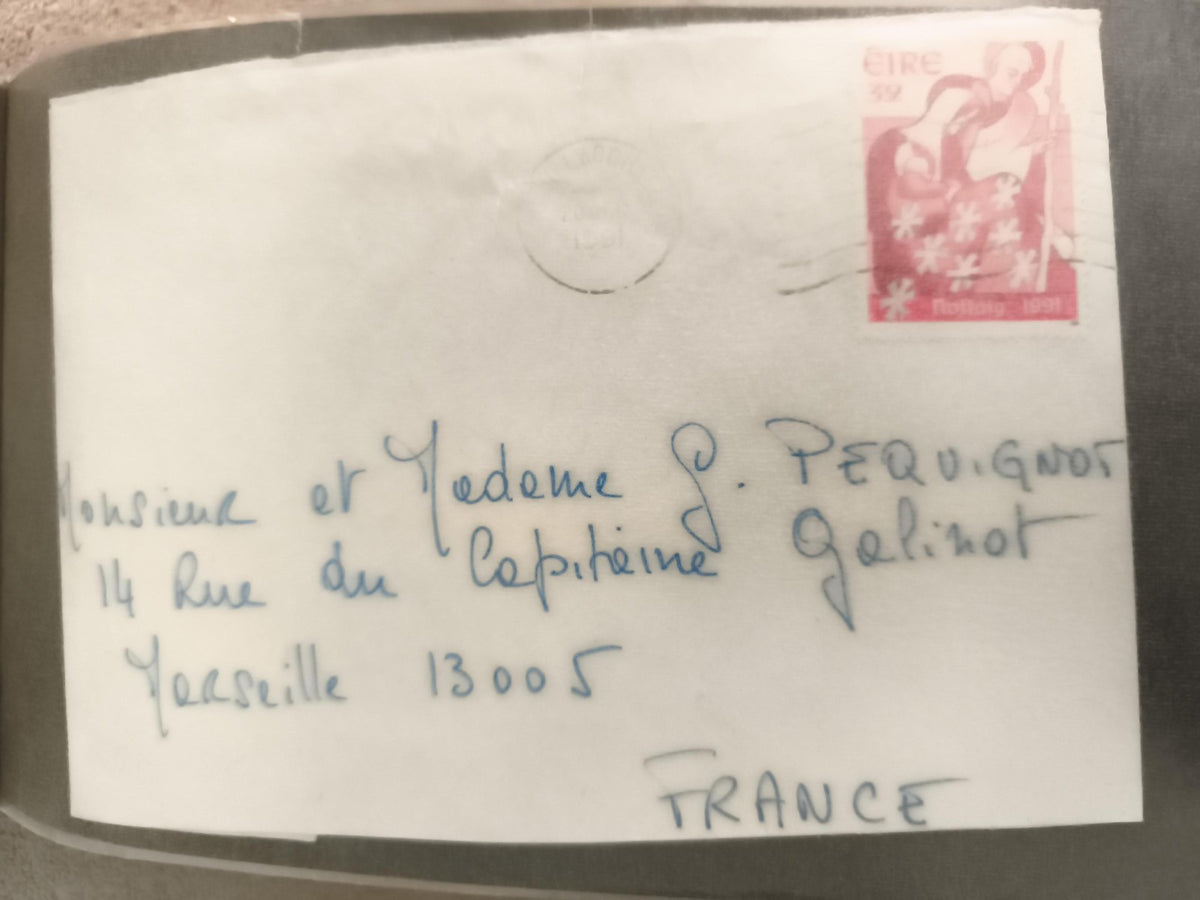 ÉIRE
32
1991
Nollaig 1991
Monsieur et Madame G. PEQUIGNOT
14 Rue du Capitaine Galinat
Marseille 13005
FRANCE